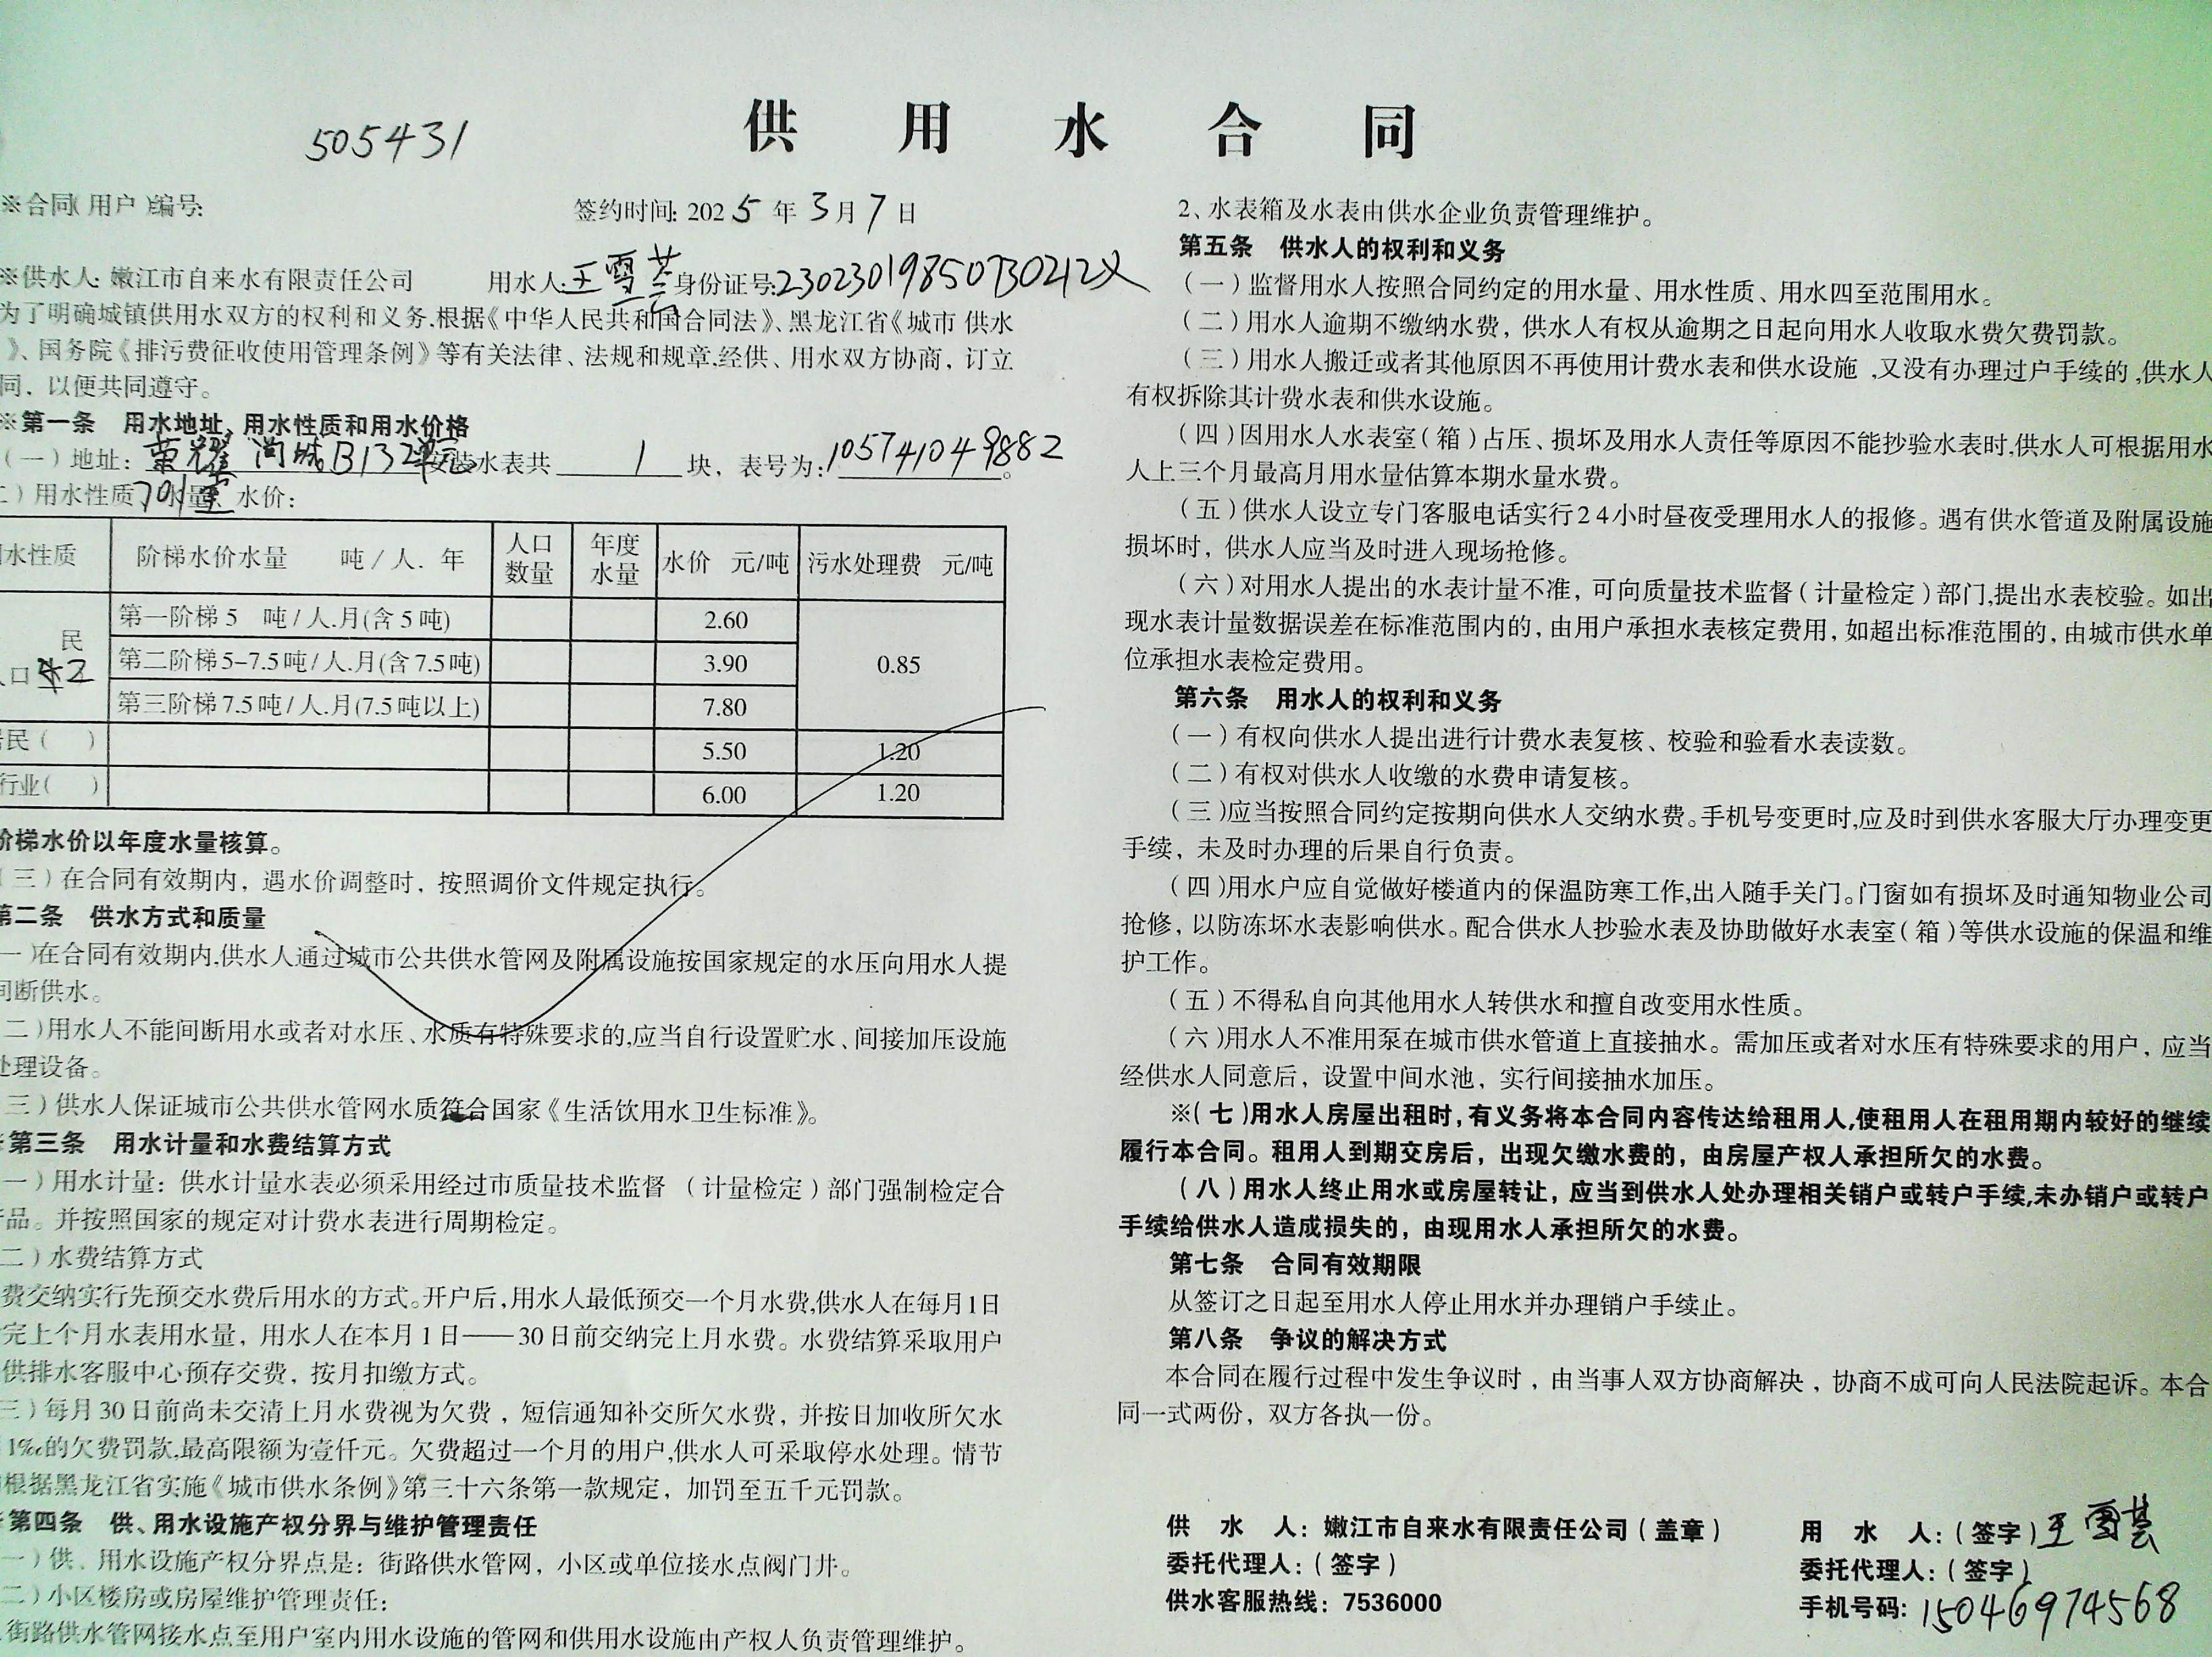 供用水合同
505431
※合同(用户)编号:
签约时间: 2025年3月7日
※供水人: 嫩江市自来水有限责任公司 用水人: 王雪芸 身份证号:
为了明确城镇供用水双方的权利和义务,根据《中华人民共和国合同法》、黑龙江省《城市 供水
》、国务院《排污费征收使用管理条例》等有关法律、法规和规章,经供、用水双方协商，订立
同，以便共同遵守。
※第一条 用水地址、用水性质和用水价格
(一)地址: 荣耀尚城B132单元 安装水表共 1 块，表号为: 105741049882。
二)用水性质、水量、水价: 701室
水性质 阶梯水价水量 吨/人.年 人口数量 年度水量 水价 元/吨 污水处理费 元/吨
民 第一阶梯5 吨/人.月(含5吨) 2.60
口 2 第二阶梯5-7.5吨/人.月(含7.5吨) 3.90 0.85
第三阶梯7.5吨/人.月(7.5吨以上) 7.80
居民( ) 5.50 1.20
行业( ) 6.00 1.20
阶梯水价以年度水量核算。
(三)在合同有效期内，遇水价调整时，按照调价文件规定执行。
第二条 供水方式和质量
一)在合同有效期内,供水人通过城市公共供水管网及附属设施按国家规定的水压向用水人提
间断供水。
二)用水人不能间断用水或者对水压、水质有特殊要求的,应当自行设置贮水、间接加压设施
处理设备。
三)供水人保证城市公共供水管网水质符合国家《生活饮用水卫生标准》。
第三条 用水计量和水费结算方式
一)用水计量：供水计量水表必须采用经过市质量技术监督（计量检定)部门强制检定合
品。并按照国家的规定对计费水表进行周期检定。
二)水费结算方式
费交纳实行先预交水费后用水的方式。开户后,用水人最低预交一个月水费,供水人在每月1日
完上个月水表用水量，用水人在本月1日——30日前交纳完上月水费。水费结算采取用户
供排水客服中心预存交费，按月扣缴方式。
三)每月30日前尚未交清上月水费视为欠费，短信通知补交所欠水费，并按日加收所欠水
1‰的欠费罚款,最高限额为壹仟元。欠费超过一个月的用户,供水人可采取停水处理。情节
根据黑龙江省实施《城市供水条例》第三十六条第一款规定，加罚至五千元罚款。
第四条 供、用水设施产权分界与维护管理责任
一)供、用水设施产权分界点是：街路供水管网，小区或单位接水点阀门井。
二)小区楼房或房屋维护管理责任:
街路供水管网接水点至用户室内用水设施的管网和供用水设施由产权人负责管理维护。
2、水表箱及水表由供水企业负责管理维护。
第五条 供水人的权利和义务
(一)监督用水人按照合同约定的用水量、用水性质、用水四至范围用水。
(二)用水人逾期不缴纳水费，供水人有权从逾期之日起向用水人收取水费欠费罚款。
(三)用水人搬迁或者其他原因不再使用计费水表和供水设施 ,又没有办理过户手续的,供水人
有权拆除其计费水表和供水设施。
(四)因用水人水表室(箱)占压、损坏及用水人责任等原因不能抄验水表时,供水人可根据用水
人上三个月最高月用水量估算本期水量水费。
(五)供水人设立专门客服电话实行24小时昼夜受理用水人的报修。遇有供水管道及附属设施
损坏时，供水人应当及时进入现场抢修。
(六)对用水人提出的水表计量不准，可向质量技术监督(计量检定)部门,提出水表校验。如出
现水表计量数据误差在标准范围内的，由用户承担水表核定费用，如超出标准范围的，由城市供水单
位承担水表检定费用。
第六条 用水人的权利和义务
(一)有权向供水人提出进行计费水表复核、校验和验看水表读数。
(二)有权对供水人收缴的水费申请复核。
(三)应当按照合同约定按期向供水人交纳水费。手机号变更时,应及时到供水客服大厅办理变更
手续，未及时办理的后果自行负责。
(四)用水户应自觉做好楼道内的保温防寒工作,出入随手关门。门窗如有损坏及时通知物业公司
抢修，以防冻坏水表影响供水。配合供水人抄验水表及协助做好水表室(箱)等供水设施的保温和维
护工作。
(五)不得私自向其他用水人转供水和擅自改变用水性质。
(六)用水人不准用泵在城市供水管道上直接抽水。需加压或者对水压有特殊要求的用户，应当
经供水人同意后，设置中间水池，实行间接抽水加压。
※(七)用水人房屋出租时,有义务将本合同内容传达给租用人,使租用人在租用期内较好的继续
履行本合同。租用人到期交房后，出现欠缴水费的，由房屋产权人承担所欠的水费。
(八)用水人终止用水或房屋转让，应当到供水人处办理相关销户或转户手续,未办销户或转户
手续给供水人造成损失的，由现用水人承担所欠的水费。
第七条 合同有效期限
从签订之日起至用水人停止用水并办理销户手续止。
第八条 争议的解决方式
本合同在履行过程中发生争议时，由当事人双方协商解决，协商不成可向人民法院起诉。本合
同一式两份，双方各执一份。
供水人：嫩江市自来水有限责任公司(盖章) 用水人：(签字) 王雪芸
委托代理人：(签字) 委托代理人：(签字)
供水客服热线：7536000 手机号码: 15046974568